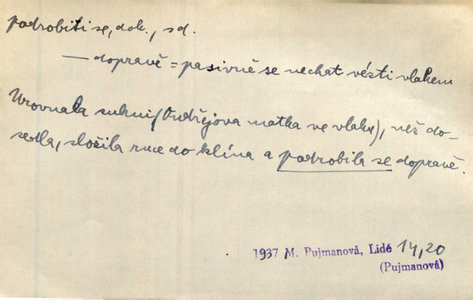 podrobiti se, dok., sd.
— dopravě = pasivně se nechat vézti vlakem
Urovnala sukni (Ondřejova matka ve vlaku), než do-
sedla, složila ruce do klína a podrobila se dopravě.
1937 M. Pujmanová, Lidé 14,20
(Pujmanová)